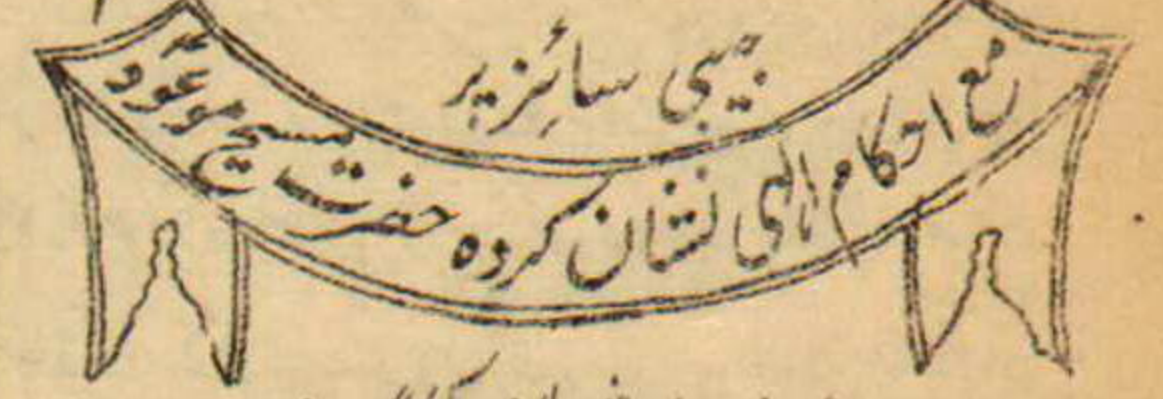 جیبی سائز پر
مع احکام الہی نشان کردہ حضرت مسیح موعودؑ